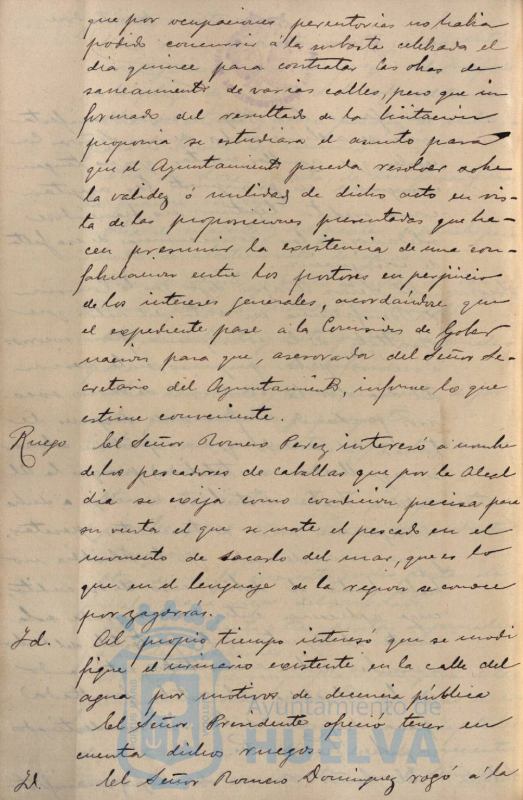 que por ocupaciones perentorias no habia
podido concurrir á la subasta celebrada el
dia quince para contratar las obras de
saneamiento de varias calles, pero que in
formado del resultado de la licitación
proponia se estudiara el asunto para
que el Ayuntamiento pueda resolver sobre
la validez ó nulidad de dicho acto en vis-
ta de las proposiciones presentadas que ha-
cen presumir la existencia de una con-
fabulacion entre los postores en perjuicio
de los intereses generales, acordándose que
el expediente pase á la Comision de Gober
nacion para que, asesorados del Señor Se-
cretario del Ayuntamiento, informe lo que
estime conveniente.
Ruego El Señor Romero Perez interesó á nombre
de los pescadores de caballas que por la Alcal
dia se exija como condicion precisa para
su venta el que se mate el pescado en el
momento de sacarlo del mar, que es lo
que en el lenguaje de la region se conoce
por zagorrás.
Id. Al propio tiempo interesó que se modi
fique el urinario existente en la calle del
agua por motivos de decencia pública
El Señor Presidente ofreció tener en
cuenta dichos ruegos.
Id. El Señor Romero Dominguez rogó á la
Ayuntamiento de
HUELVA